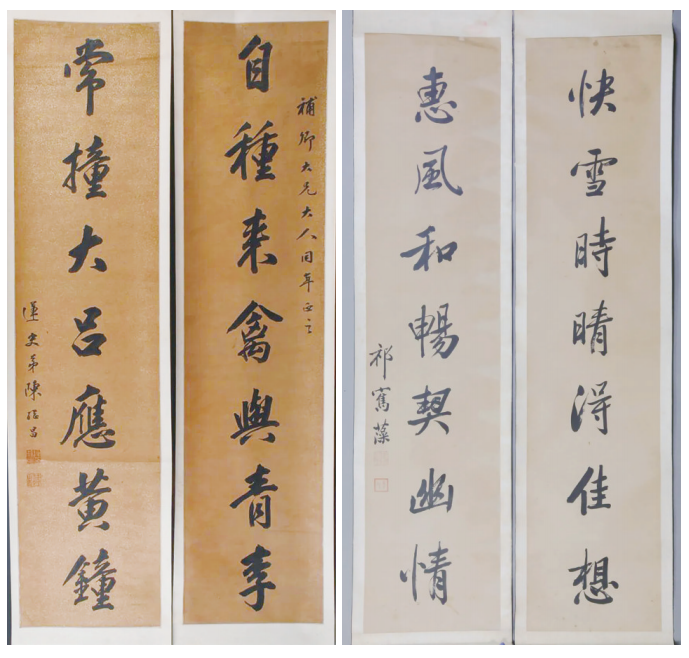 快雪時晴得佳想
惠風和暢契幽情
祁寯藻
補卿大兄大人同年正之
自種来禽與青李
常撞大吕應黄鐘
蓮史弟陳継昌